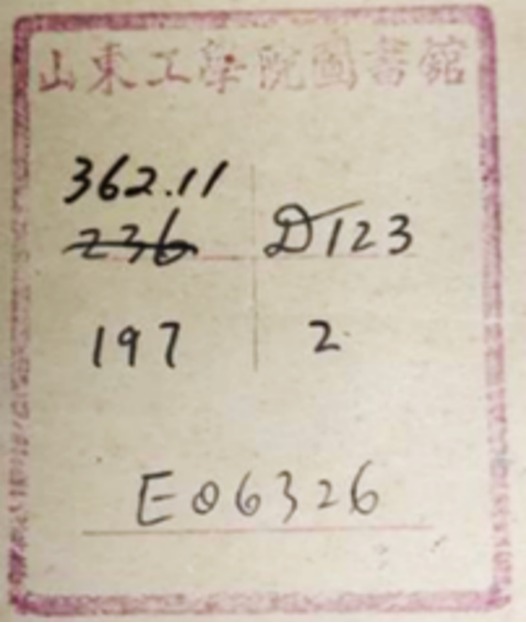 山東工學院圖書館
362.11
236 D123
197 2
E06326